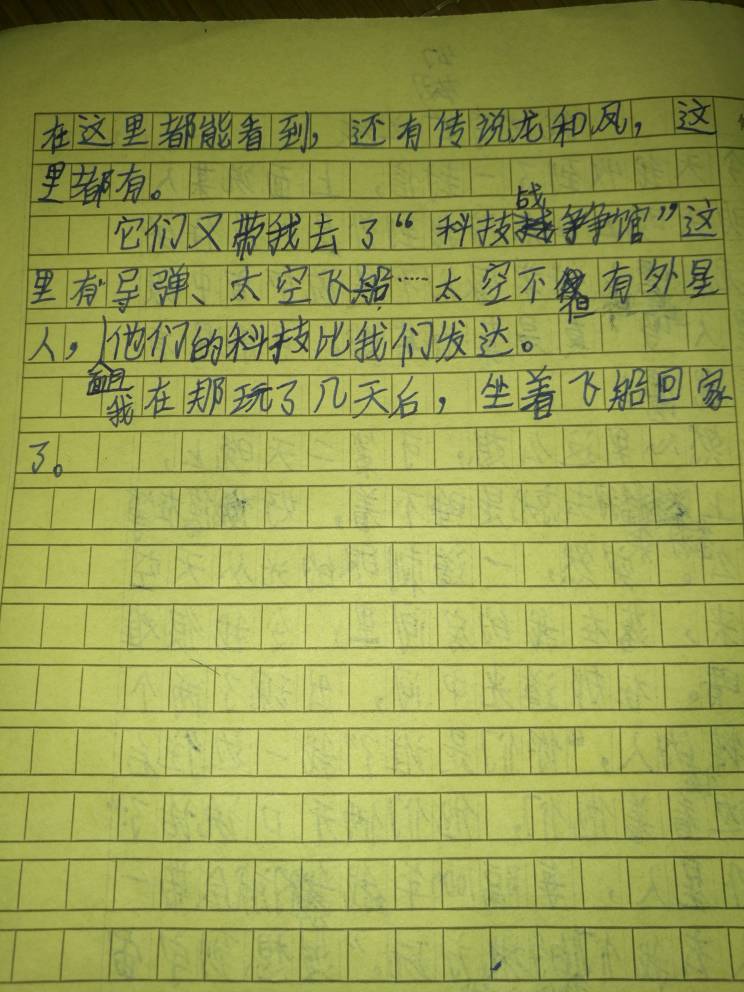 在这里都能看到，还有传说龙和凤，这
里都有。
它们又带我去了“科技战争馆”这
里有导弹、太空飞船……太空不但有外星
人，而且他们的科技比我们发达。
我在那玩了几天后，坐着飞船回家
了。